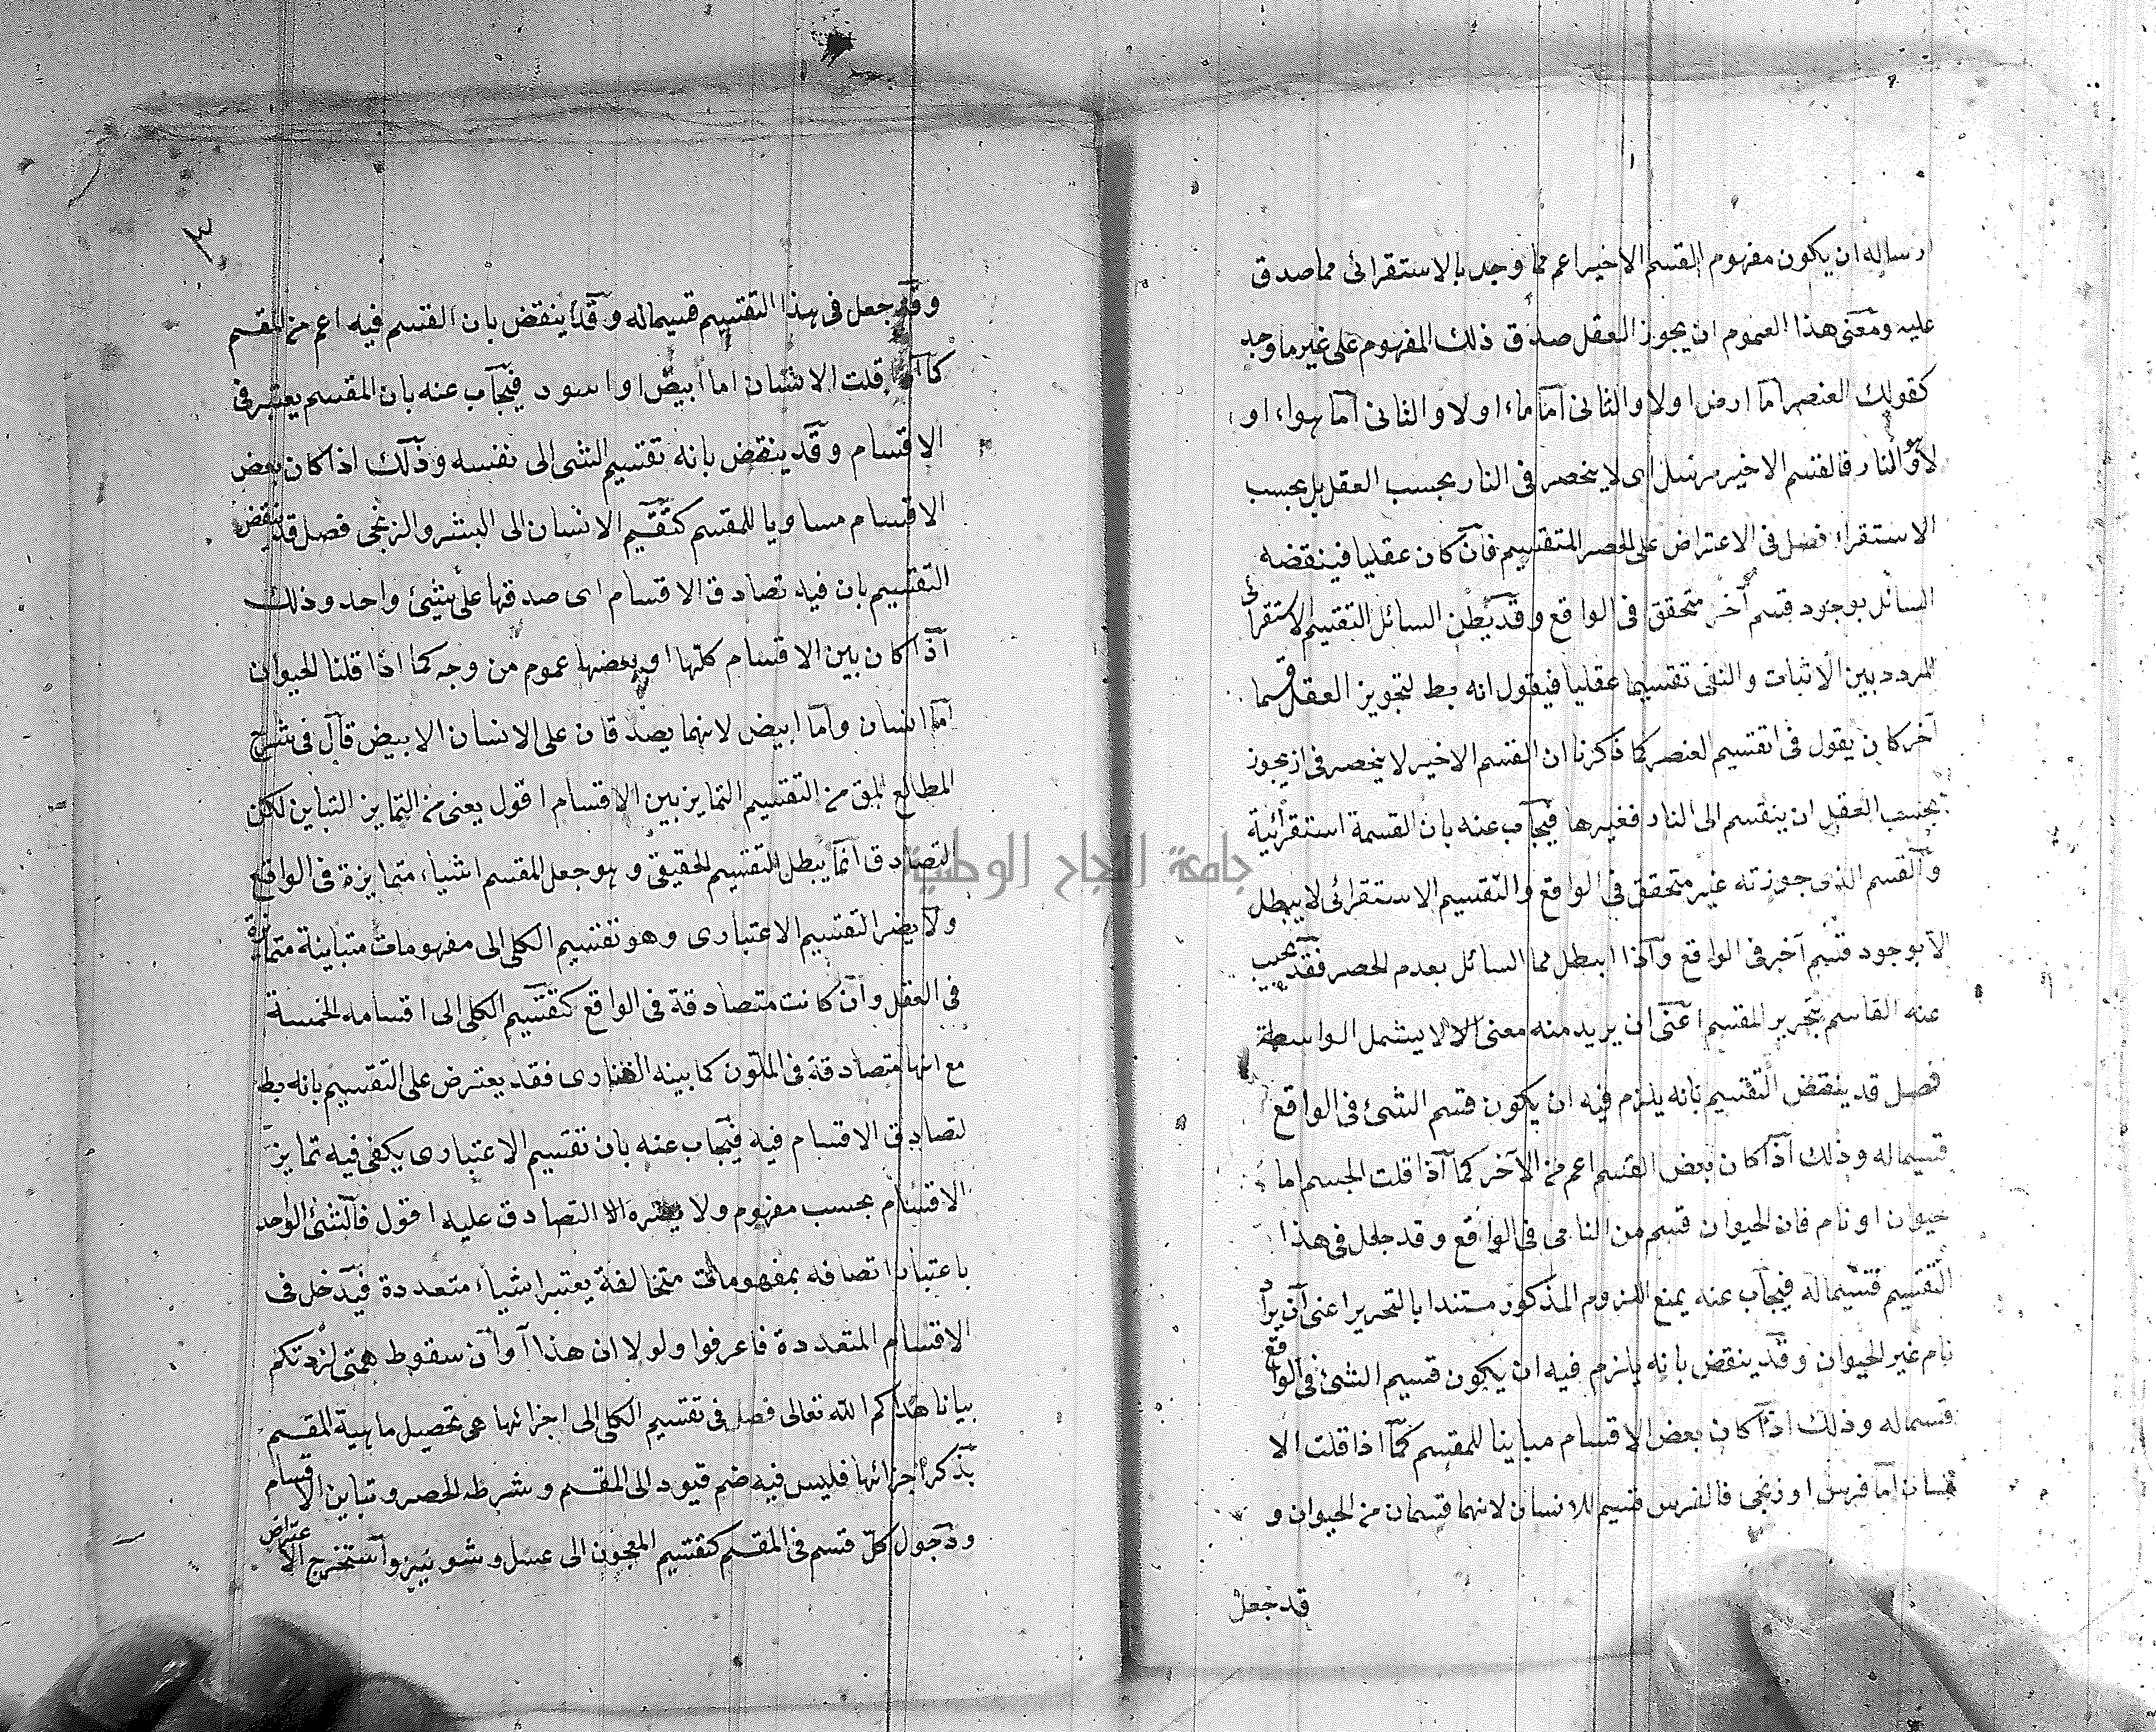 ارساله ان يكون مفهوم القسم الاخير اعم مما وجد بالاستقرائى مما صدق
عليه ومعنى هذا العموم ان يجوز العقل صدق ذلك المفهوم على غير ما وجد
كقولك العنصر اما ارض اولا والثانى اما ماء اولا والثانى اما هواء او
لا وهو النار فالقسم الاخير مرسل اى لا ينحصر فى النار بحسب العقل بل بحسب
الاستقراء فصل فى الاعتراض على الحصر التقسيم فان كان عقليا فينقضه
السائل بوجود قسم آخر متحقق فى الواقع وقد يظن السائل التقسيم الاستقرائى
المردد بين الاثبات والنفى تقسيما عقليا فيقول انه بط لتجويز العقل قسما
آخر كان يقول فى تقسيم العنصر كما ذكرنا ان القسم الاخير لا ينحصر فى اذ يجوز
بحسب العقل ان ينقسم الى النار فغيرها فيجاب عنه بان القسمة استقرائية
والقسم الذى جوزته غير متحقق فى الواقع والتقسيم الاستقرائى لا يبطل
الا بوجود قسم آخر فى الواقع واذا ابطل مما السائل بعدم الحصر فقد يجيب
عنه القاسم بتحرير المقسم اعنى ان يريد منه معنى الا لا يشمل الواسطة
فصل قد ينقض التقسيم بانه يلزم فيه ان يكون قسم الشئ فى الواقع
قسيما له وذلك اذا كان بعض القسم اعم من الآخر كما اذا قلت الجسم اما
حيوان او نام فان الحيوان قسم من النامى فى الواقع وقد جعل فى هذا
التقسيم قسيما له فيجاب عنه يمنع اللزوم المذكور مستندا بالتحرير اعنى ان يراد
نام غير الحيوان وقد ينقض بانه يلزم فيه ان يكون قسيم الشئ فى الواقع
قسما له وذلك اذا كان بعض الاقسام مباينا للمقسم كما اذا قلت الا
نسان اما فرس او زنجى فالفرس قسيم للانسان لانهما قسمان من الحيوان و
قد جعل
٣
وقد جعل فى هذا التقسيم قسيما له وقد ينقض بان القسم فيه اعم من المقسم
كما اذا قلت الانسان اما ابيض او اسود فيجاب عنه بان المقسم يعتبر فى
الاقسام وقد ينقض بانه تقسيم الشى الى نفسه وذلك اذا كان بعض
الاقسام مساويا للمقسم كتقسيم الانسان الى البشر والزنجى فصل قد ينقض
التقسيم بان فيه تصادق الاقسام اى صدقها على شئ واحد وذلك
اذا كان بين الاقسام كلها او بعضها عموم من وجه كما اذا قلنا الحيوان
اما انسان واما ابيض لانهما يصدقان على الانسان الابيض قال فى شرح
المطالع المق من التقسيم التمايز بين الاقسام اقول يعنى من التمايز التباين لكن
التصادق انما يبطل التقسيم الحقيقى وهو جعل المقسم اشياء متمايزة فى الواقع
ولا يضر التقسيم الاعتبارى وهو تقسيم الكلى الى مفهومات متباينة متمايزة
فى العقل وان كانت متصادقة فى الواقع كتقسيم الكلى الى اقسامه الخمسة
مع انها متصادقة فى الملون كما بينه الفنارى فقد يعترض على التقسيم بانه بط
لتصادق الاقسام فيه فيجاب عنه بان تقسيم الاعتبارى يكفى فيه تمايز
الاقسام بحسب مفهوم ولا يضره الا التصادق عليه اقول فالشئ الواحد
باعتبار اتصافه بمفهومات متخالفة يعتبر اشياء متعددة فيدخل فى
الاقسام المتعددة فاعرفوا ولولا ان هذا آوان سقوط همتى لزدتكم
بيانا هداكم الله تعالى فصل فى تقسيم الكلى الى اجزائها هى تحصيل ماهية المقسم
بذكر اجزائها فليس فيه ضم قيود الى المقسم وشرطه الحصر وتباين الاقسام
ودخول كل قسم فى المقسم كتقسيم المعجون الى عسل وشونيز واستخرج الاعتراض
جامعة النجاح الوطنية